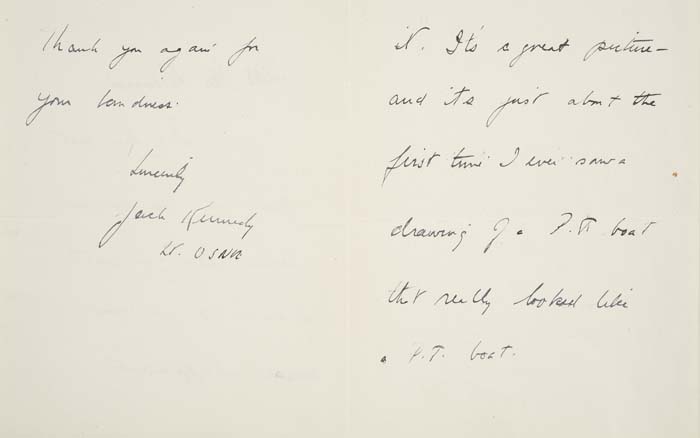 Thank you again for
your kindness.
Sincerely
Jack Kennedy
Lt. USNR
it. It's a great picture—
and it's just about the
first time I ever saw a
drawing of a P.T. boat
that really looked like
a P.T. boat.